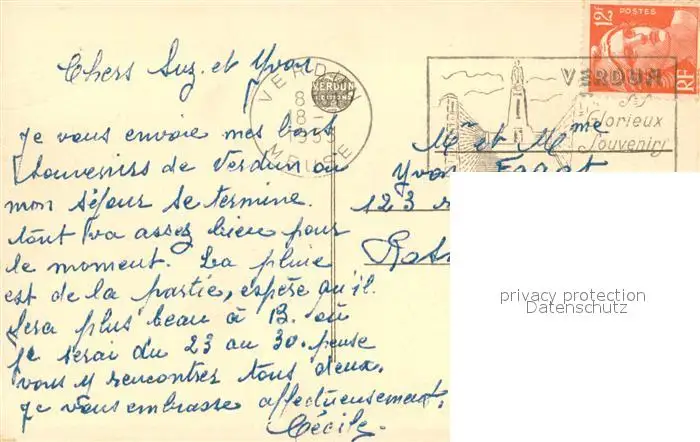 Chers Suz. et Yvon
Je vous envoie mes bons
souvenirs de Verdun où
mon séjour se termine.
tout va assez bien pour
le moment. La pluie
est de la partie, espère qu'il
sera plus beau à B. où
je serai du 23 au 30. pense
vous y rencontrer tous deux.
Je vous embrasse affectueusement.
Cécile.
VERDUN
MEUSE
8
18 -
VERDUN
POSTES
12F
RF
VERDUN
Glorieux
Souvenirs
Mr et Mme
Yvon
123
privacy protection
Datenschutz